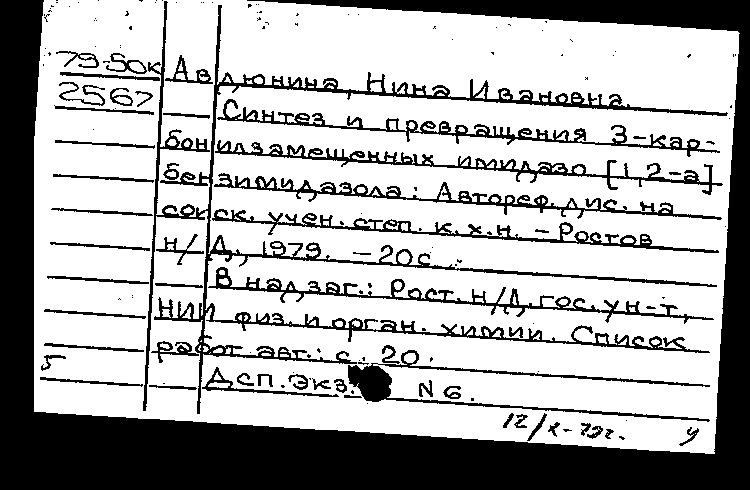 79-50к Авдюнина, Нина Ивановна.
2567 Синтез и превращения 3-кар-
бонилзамещенных имидазо [1,2-а]
бензимидазола: Автореф. дис. на
соиск. учен. степ. к. х. н. - Ростов
н/Д., 1979. - 20 с.
В надзаг.: Рост. н/Д. гос. ун-т,
НИИ физ. и орган. химии. Список
работ авт.: с. 20.
5 Дсп. Экз. N 6.
12/X-79г. у